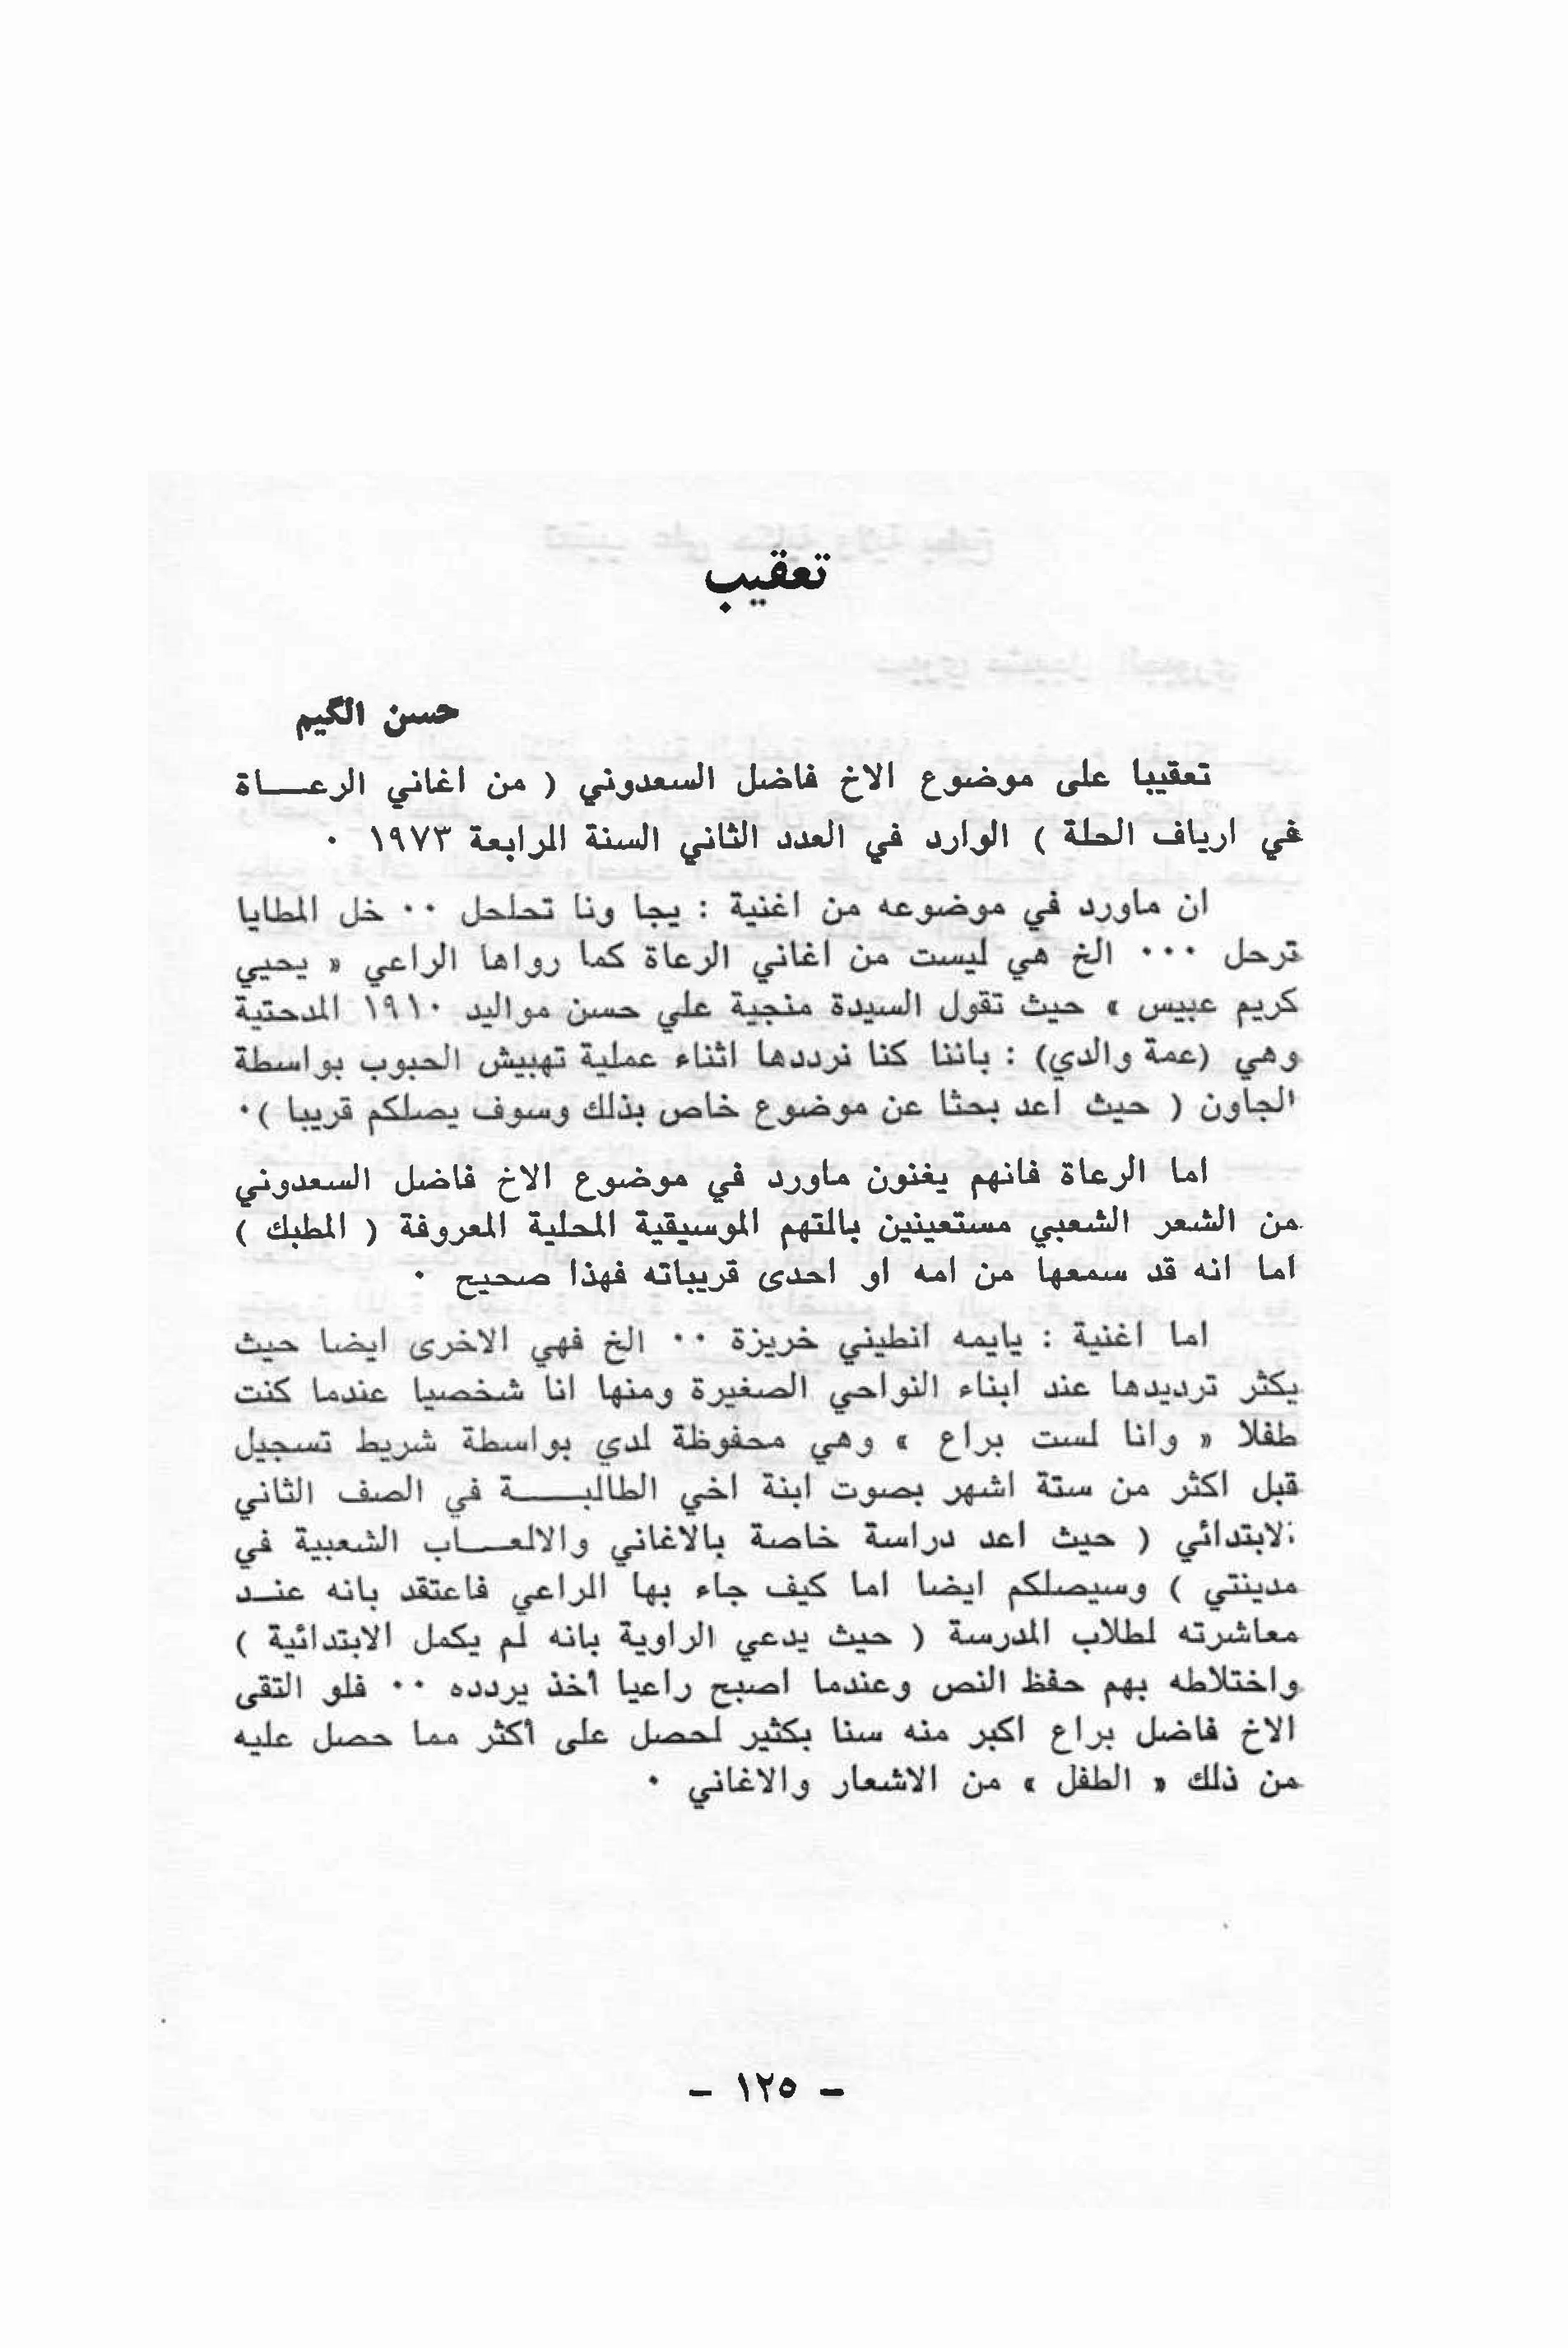 تعقيب
حسن الگيم
تعقيبا على موضوع الاخ فاضل السعدوني ( من اغاني الرعـــاة
في ارياف الحلة ) الوارد في العدد الثاني السنة الرابعة ١٩٧٣ ٠
ان ماورد في موضوعه من اغنية : يجا ونا تحلحل ٠٠ خل المطايا
ترحل ٠٠٠ الخ هي ليست من اغاني الرعاة كما رواها الراعي « يحيي
كريم عبيس » حيث تقول السيدة منجية علي حسن مواليد ١٩١٠ المدحتية
وهي (عمة والدي) : باننا كنا نرددها اثناء عملية تهبيش الحبوب بواسطة
الجاون ( حيث اعد بحثا عن موضوع خاص بذلك وسوف يصلكم قريبا )٠
اما الرعاة فانهم يغنون ماورد في موضوع الاخ فاضل السعدوني
من الشعر الشعبي مستعينين بالتهم الموسيقية المحلية المعروفة ( المطبك )
اما انه قد سمعها من امه او احدى قريباته فهذا صحيح ٠
اما اغنية : يايمه انطيني خريزة ٠٠ الخ فهي الاخرى ايضا حيث
يكثر ترديدها عند ابناء النواحي الصغيرة ومنها انا شخصيا عندما كنت
طفلا « وانا لست براع » وهي محفوظة لدي بواسطة شريط تسجيل
قبل اكثر من ستة اشهر بصوت ابنة اخي الطالبـــــة في الصف الثاني
الابتدائي ( حيث اعد دراسة خاصة بالاغاني والالعـــاب الشعبية في
مدينتي ) وسيصلكم ايضا اما كيف جاء بها الراعي فاعتقد بانه عنــد
معاشرته لطلاب المدرسة ( حيث يدعي الراوية بانه لم يكمل الابتدائية )
واختلاطه بهم حفظ النص وعندما اصبح راعيا أخذ يردده ٠٠ فلو التقى
الاخ فاضل براع اكبر منه سنا بكثير لحصل على أكثر مما حصل عليه
من ذلك « الطفل » من الاشعار والاغاني ٠
– ١٢٥ –